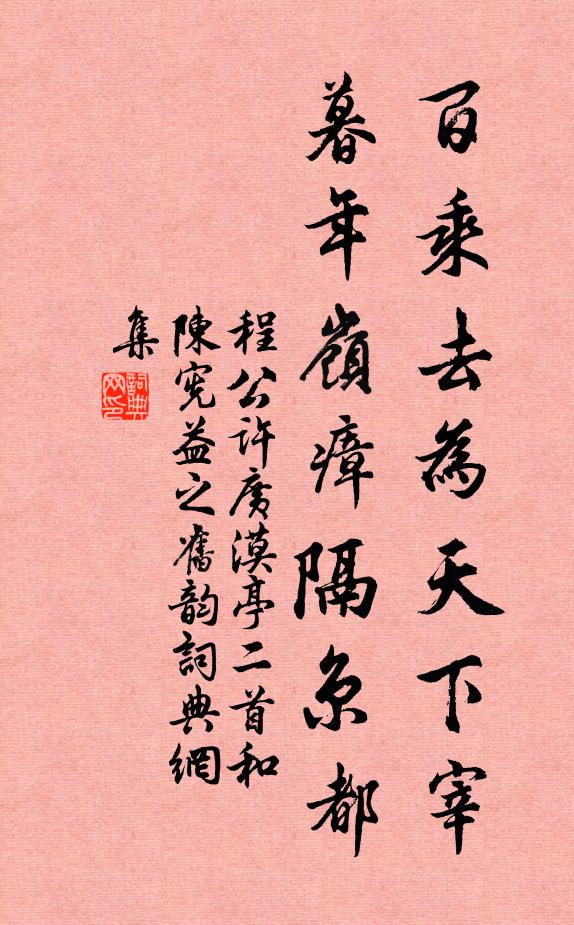 百乘去為天下宰
暮年嶺瘴隔京都
程公許廣漠亭二首和
陳憲益之舊韵詞典網
集
詞典
网印